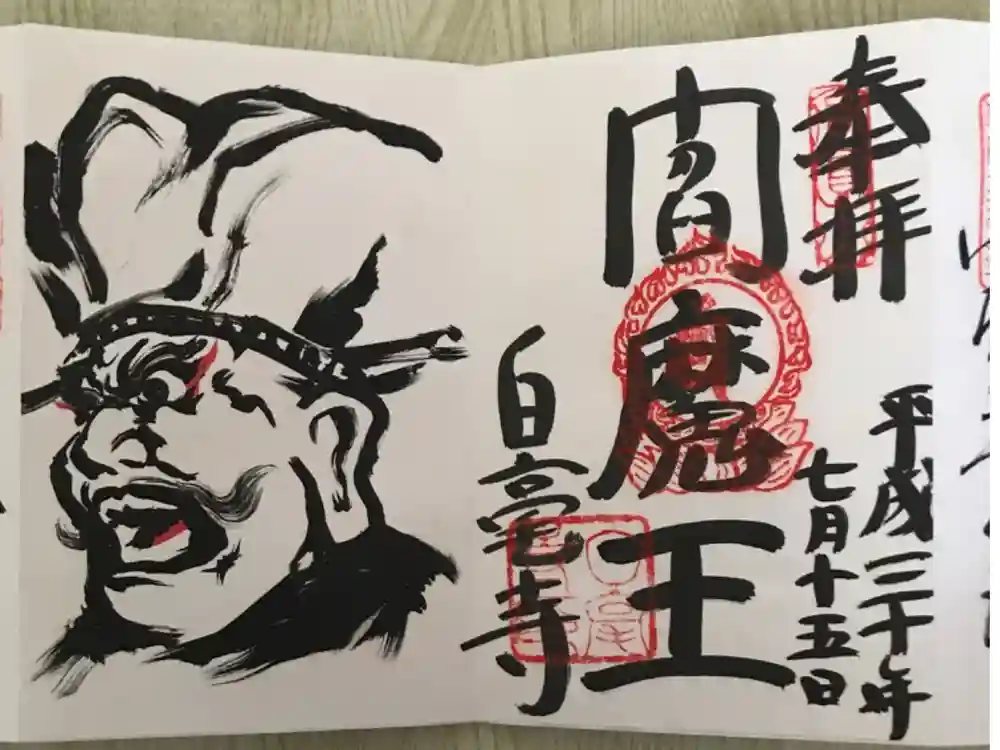 奉拝
平成三十年
七月十五日
閻魔王
白毫寺